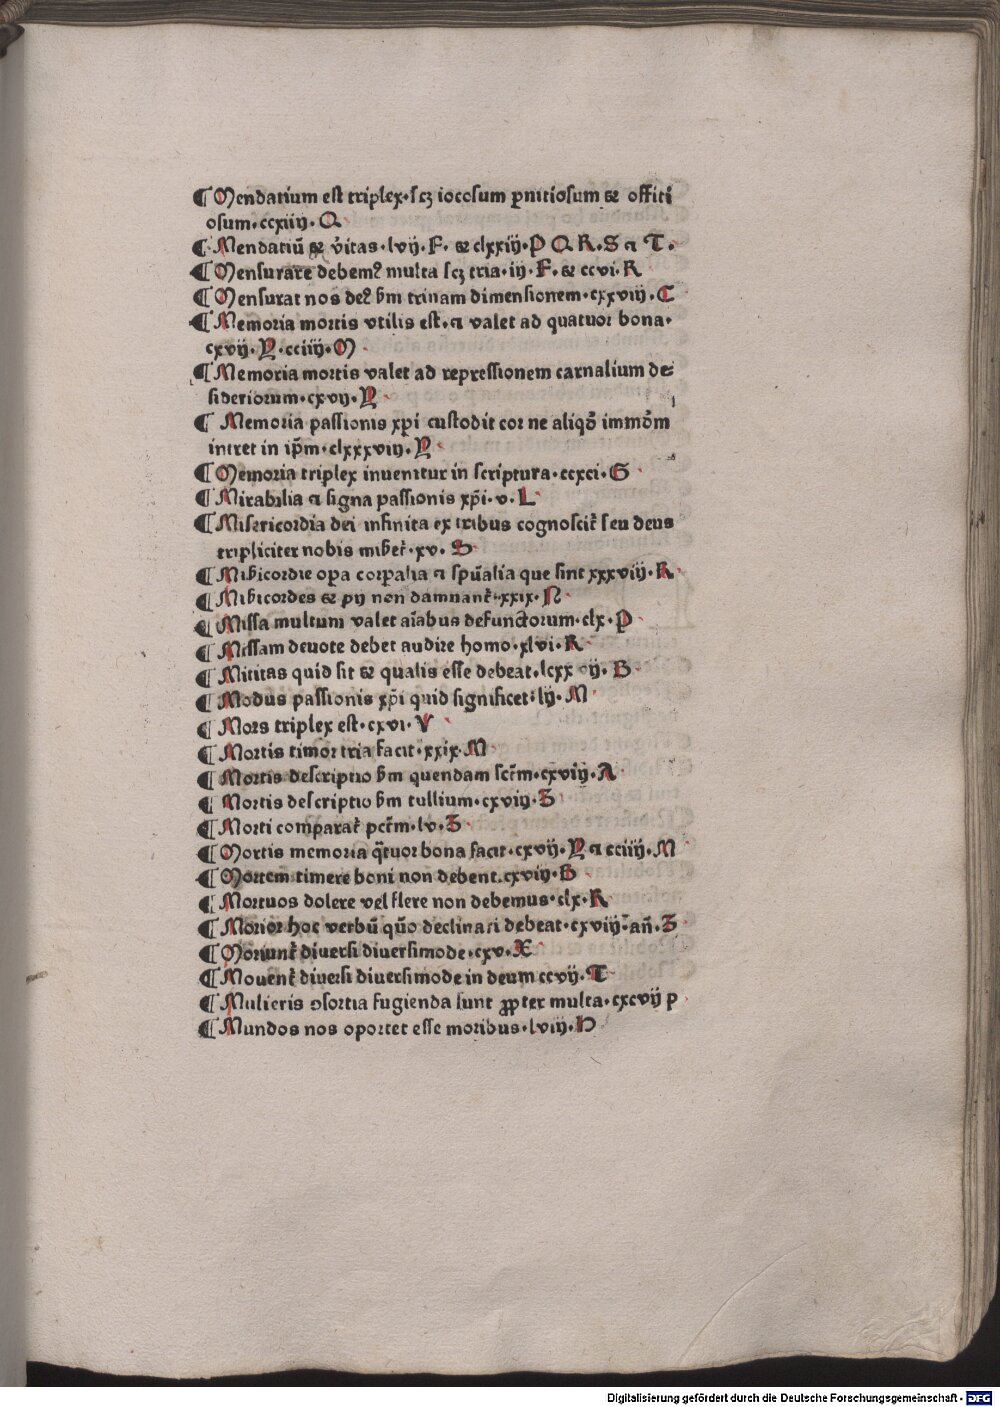 ¶ Mendatium est triplex·scꝫ iocosum ꝑnitiosum ⁊ offiti
osum·ccxiiij·Q
¶ Mendatiū ⁊ v̓itas·lvij·F· ⁊ clxxiij·P Q R·S ⁊ T·
¶ Mensurare debemꝰ multa scꝫ tria·iij·F·⁊ ccvi·R
¶ Mensurat nos deꝰ ẜm trinam dimensionem·cxxviij·C
¶ Memoria mortis vtilis est·⁊ valet ad quatuor bona·
cxvij·Y·cciiij·M
¶ Memoria mortis valet ad repressionem carnalium de⸗
sideriorum·cxvij·Y
¶ Memoria passionis xp̄i custodit cor ne aliqd̄ immōm
intret in ip̄m·clxxxviij·Y
¶ Memoria triplex inuenitur in scriptura·ccxci·G
¶ Mirabilia ⁊ signa passionis xp̄i·v·L
¶ Misericordia dei infinita ex tribus cognoscit᷑ seu deus
tripliciter nobis miẜet᷑·xv·S
¶ Miẜicordie oꝑa corꝑalia ⁊ spūalia que sint xxxviij·R
¶ Miẜicordes ⁊ pij non damnant᷑·xxix·N
¶ Missa multum valet aīabus defunctorum·clx·P
¶ Missam deuote debet audire homo·xlvi·R
¶ Mititas quid sit ⁊ qualis esse debeat·lcxx ij·B
¶ Modus passionis xp̄i quid significet·lij·M
¶ Mors triplex est·cxvi·V
¶ Mortis timor tria facit·xxix·M
¶ Mortis descriptio ẜm quendam scr̄m·cxviij·A
¶ Mortis descriptio ẜm tullium·cxviij·Z
¶ Morti comparat᷑ pctm̄·lv·Z
¶ Mortis memoria q̄tuor bona facit·cxvij·Y ⁊ cciiij·M
¶ Mortem timere boni non debent·cxviij·B
¶ Mortuos dolere vel flere non debemus·clx·R
¶ Morior hoc verbū quō declinari debeat·cxviij·añ·Z
¶ Moriunt᷑ diuersi diuersimode·cxv·X
¶ Mouent᷑ diuersi diuersimode in deum ccvij·T
¶ Mulieris ꝯsortia fugienda sunt ꝓpter multa·cxcvij p
¶ Mundos nos oportet esse moribus·lviij·D
Digitalisierung gefördert durch die Deutsche Forschungsgemeinschaft · DFG